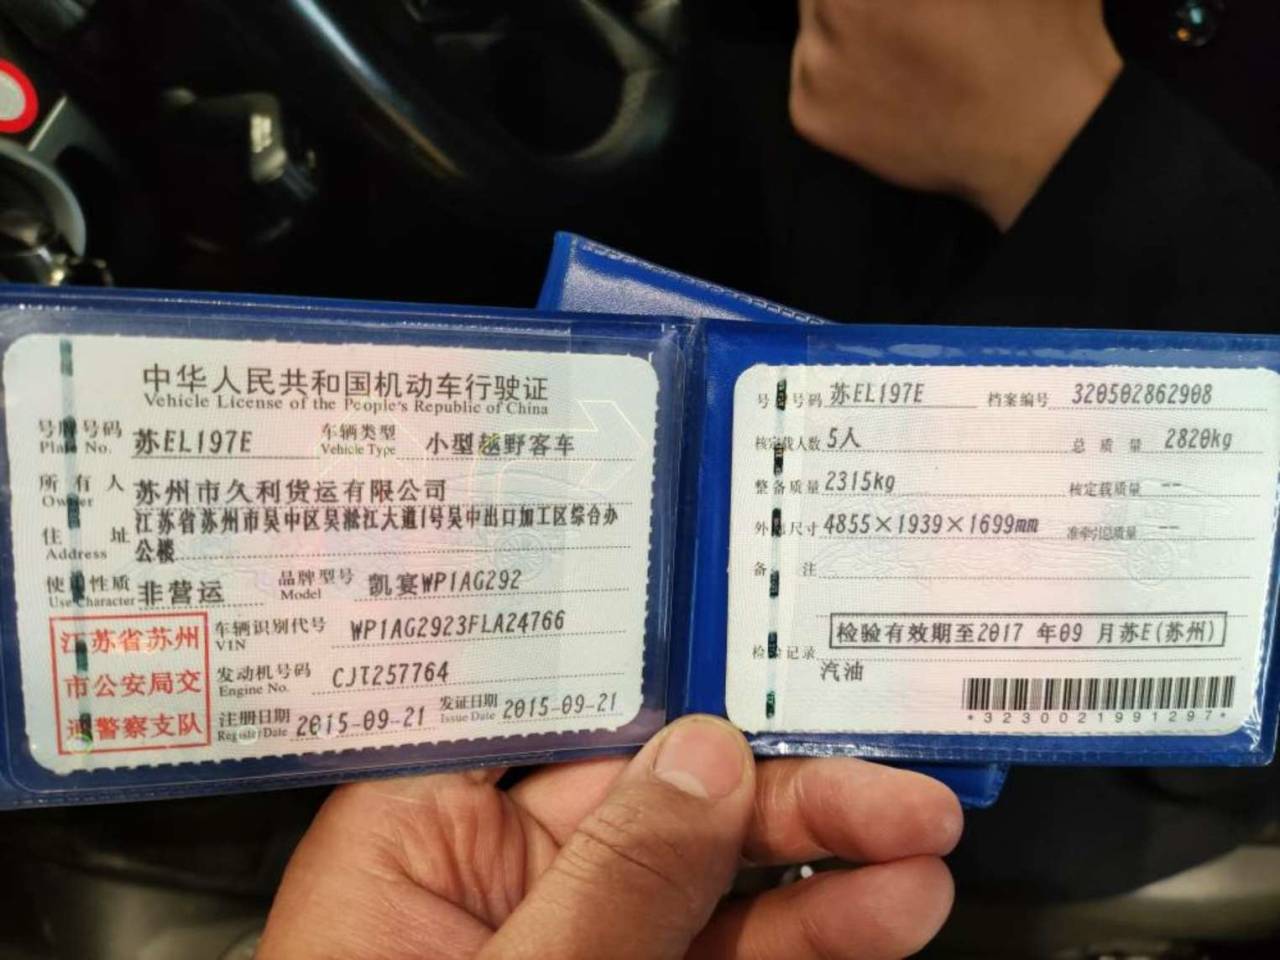 中华人民共和国机动车行驶证
Vehicle License of the People's Republic of China
号牌号码 苏EL197E 车辆类型 小型越野客车
Plate No. Vehicle Type
所有人 苏州市久利货运有限公司
Owner
住址 江苏省苏州市吴中区吴淞江大道1号吴中出口加工区综合办
Address 公楼
使用性质 非营运 品牌型号 凯宴WP1AG292
Use Character Model
江苏省苏州
市公安局交
通警察支队
车辆识别代号 WP1AG2923FLA24766
VIN
发动机号码 CJT257764
Engine No.
注册日期 2015-09-21 发证日期 2015-09-21
Register Date Issue Date
号牌号码 苏EL197E 档案编号 320502862908
核定载人数 5人 总质量 2820kg
整备质量 2315kg 核定载质量 --
外廓尺寸 4855×1939×1699mm 准牵引总质量 --
备注
检验有效期至2017 年09 月苏E(苏州)
检验记录
汽油
*3230021991297*